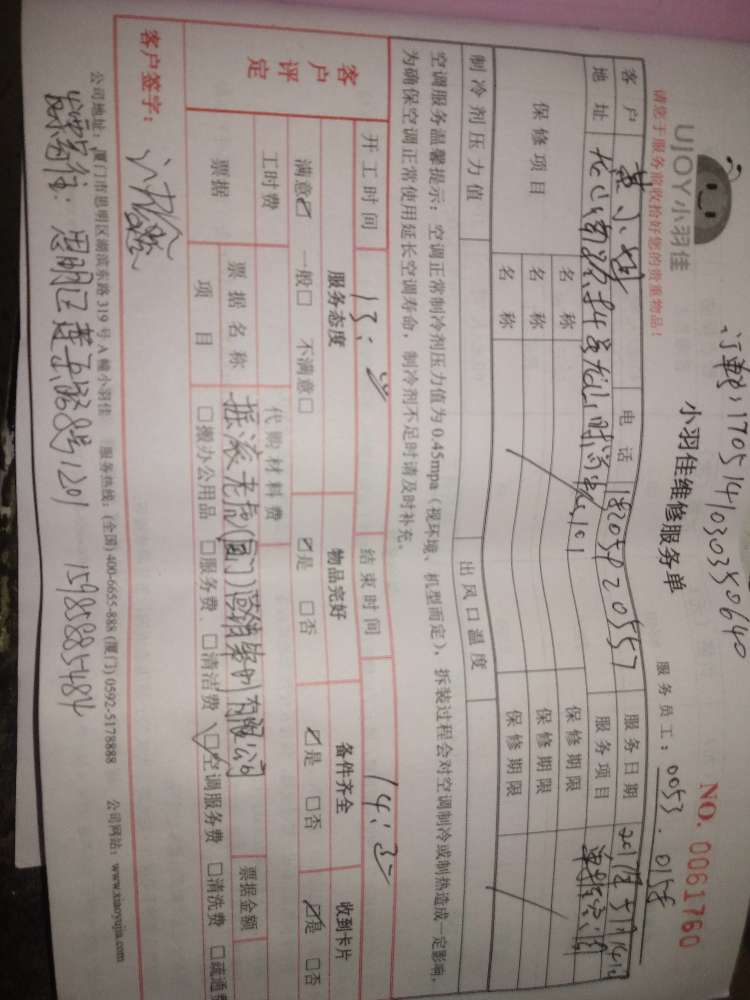 订单号:1705141030350640
UJOY小羽佳
小羽佳维修服务单
NO. 0061760
请您于服务前收拾好您的贵重物品!
服务员工: 0053. 0158
客户 电话 18205920557 服务日期 2017年5月14日
地址 服务项目
保修项目 名称 保修期限
名称 保修期限
名称 保修期限
制冷剂压力值 出风口温度
空调服务温馨提示:空调正常制冷剂压力值为0.45mpa(视环境、机型而定),拆装过程会对空调制冷或制热造成一定影响,
为确保空调正常使用延长空调寿命,制冷剂不足时请及时补充。
开工时间 结束时间 14:30
客户评定 服务态度 物品完好 备件齐全 收到卡片
满意☑ 一般□ 不满意□ ☑是 □否 ☑是 □否 ☑是 □否
工时费 代购材料费
票据 票据名称 摇滚老虎(厦门)营销策划有限公司 票据金额
项目 □搬办公用品 □服务费 □清洁费 ☑空调服务费 □清洗费 □疏通费
客户签字:
公司地址:厦门市思明区湖滨东路319号A幢小羽佳 服务热线:(全国)400-6655-888 (厦门)0592-5178888 公司网站:www.xiaoyujia.com
思明区莲岳路8号1201 15985885484